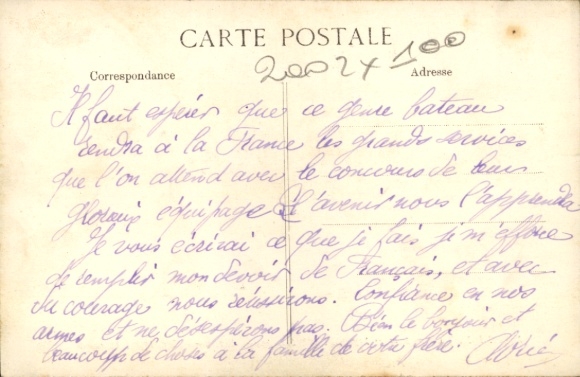 CARTE POSTALE
20024 100
Correspondance
Adresse
Il faut espérer que ce genre bateau
rendra à la France les grands services
que l'on attend avec le concours de leurs
glorieux équipage et l'avenir nous l'apprendra
Je vous écrirai ce que je fais je m'efforce
de remplir mon devoir de Français, et avec
du courage nous réussirons. Confiance en nos
armes et ne désespérons pas. Bien le bonjour et
beaucoup de choses à la famille de votre frère.